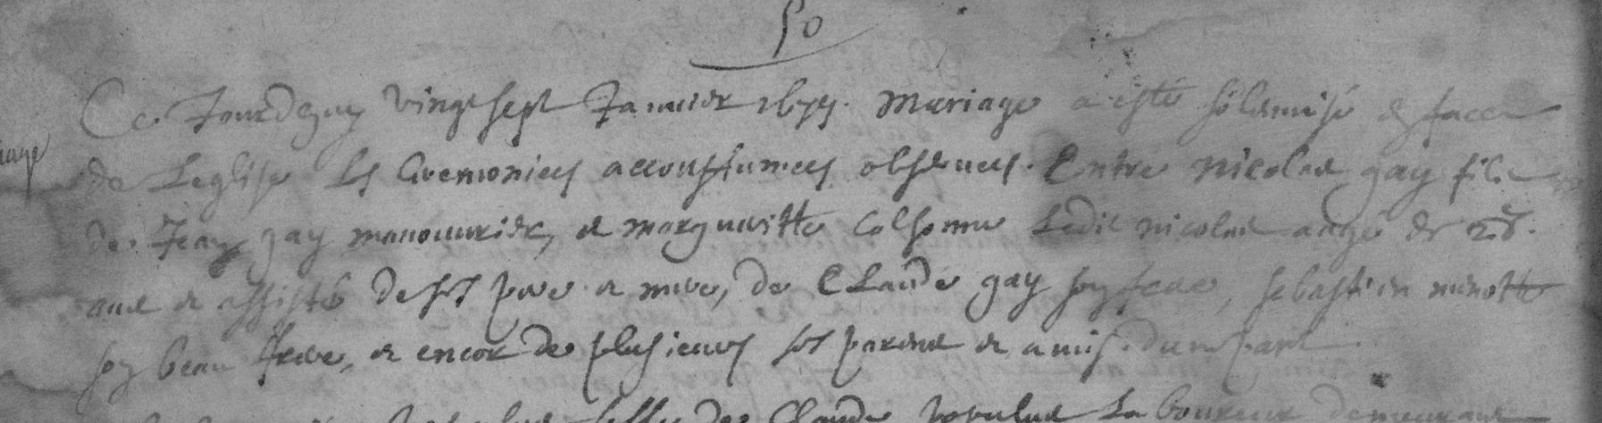 50
Ce Jourdhuy vingt sept Januier 1675. Mariage a esté solemnisé en face
de Leglise les Ceremonies accoustumees obseruees. Entre nicolas gay fils
de Jean gay manouurier, et margueritte Colsonne Ledit nicolas aagé de
ans et assisté de ses pere et mere, de Claude gay son frere, sebastien minotte
son beau frere, et encor de plusieurs ses parens et amis. dune part
de Claude Laboureur demeurant